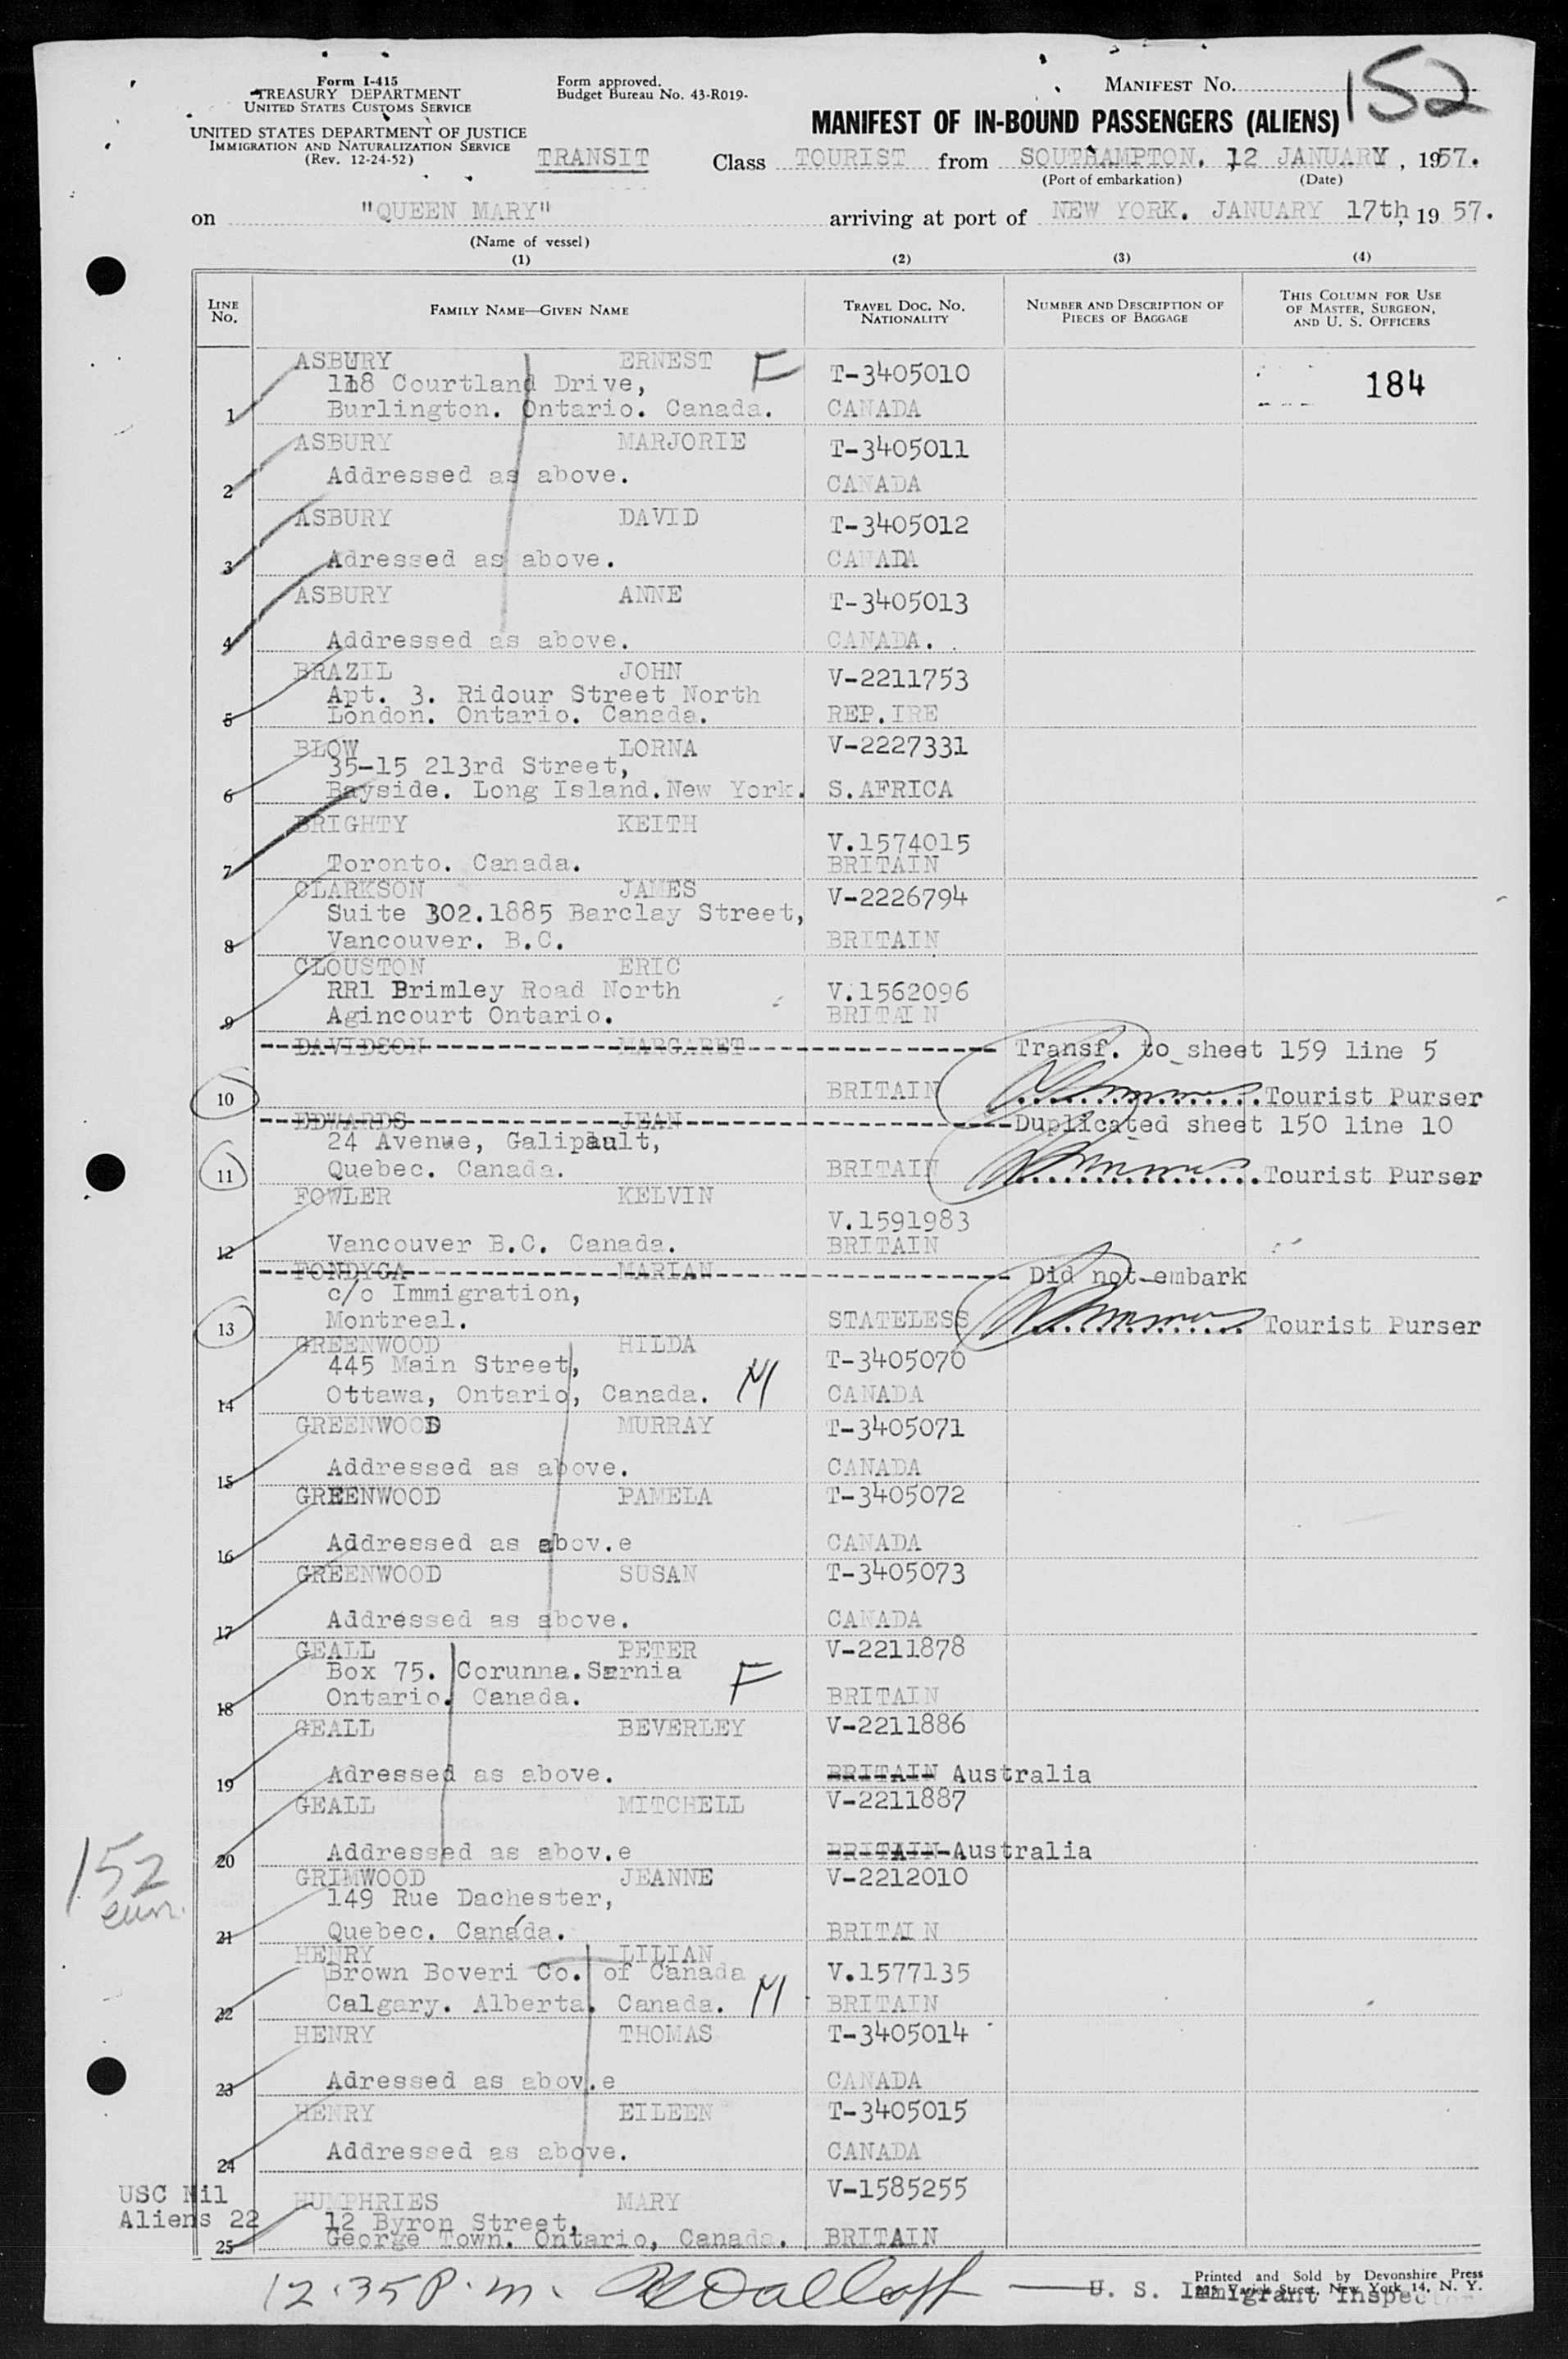 Form I-415
TREASURY DEPARTMENT
UNITED STATES CUSTOMS SERVICE
UNITED STATES DEPARTMENT OF JUSTICE
IMMIGRATION AND NATURALIZATION SERVICE
(Rev. 12-24-52)
Form approved.
Budget Bureau No. 43-R019-
MANIFEST NO. 152
MANIFEST OF IN-BOUND PASSENGERS (ALIENS)
TRANSIT Class TOURIST from SOUTHAMPTON, 12 JANUARY, 1957.
(Port of embarkation) (Date)
on "QUEEN MARY" arriving at port of NEW YORK. JANUARY 17th, 1957.
(Name of vessel)
(1) (2) (3) (4)
LINE No. FAMILY NAME—GIVEN NAME TRAVEL DOC. NO. NATIONALITY NUMBER AND DESCRIPTION OF PIECES OF BAGGAGE THIS COLUMN FOR USE OF MASTER, SURGEON, AND U. S. OFFICERS
ASBURY ERNEST F T-3405010 184
118 Courtland Drive,
1 Burlington. Ontario. Canada. CANADA
ASBURY MARJORIE T-3405011
2 Addressed as above. CANADA
ASBURY DAVID T-3405012
3 Adressed as above. CANADA
ASBURY ANNE T-3405013
4 Addressed as above. CANADA.
BRAZIL JOHN V-2211753
Apt. 3. Ridour Street North
5 London. Ontario. Canada. REP.IRE
BLOW LORNA V-2227331
35-15 213rd Street,
6 Bayside. Long Island.New York. S.AFRICA
BRIGHTY KEITH V.1574015
7 Toronto. Canada. BRITAIN
CLARKSON JAMES V-2226794
Suite 302.1885 Barclay Street,
8 Vancouver. B.C. BRITAIN
CLOUSTON ERIC
RR1 Brimley Road North V.1562096
9 Agincourt Ontario. BRITAIN
DAVIDSON MARGARET Transf. to sheet 159 line 5
10 BRITAIN Tourist Purser
EDWARDS JEAN Duplicated sheet 150 line 10
24 Avenue, Galipault,
11 Quebec. Canada. BRITAIN Tourist Purser
FOWLER KELVIN V.1591983
12 Vancouver B.C. Canada. BRITAIN
FONDYGA MARIAN Did not embark
c/o Immigration,
13 Montreal. STATELESS Tourist Purser
GREENWOOD HILDA T-3405070
445 Main Street,
14 Ottawa, Ontario, Canada. M CANADA
GREENWOOD MURRAY T-3405071
15 Addressed as above. CANADA
GREENWOOD PAMELA T-3405072
16 Addressed as abov.e CANADA
GREENWOOD SUSAN T-3405073
17 Addressed as above. CANADA
GEALL PETER V-2211878
Box 75. Corunna.Sarnia F
18 Ontario. Canada. BRITAIN
GEALL BEVERLEY V-2211886
19 Adressed as above. BRITAIN Australia
GEALL MITCHELL V-2211887
20 Addressed as abov.e BRITAIN Australia
152
GRIMWOOD JEANNE V-2212010
149 Rue Dachester,
21 Quebec. Canada. BRITAIN
HENRY LILIAN
Brown Boveri Co. of Canada V.1577135
22 Calgary. Alberta. Canada. M BRITAIN
HENRY THOMAS T-3405014
23 Adressed as abov.e CANADA
HENRY EILEEN T-3405015
24 Addressed as above. CANADA
USC Nil
Aliens 22
HUMPHRIES MARY V-1585255
12 Byron Street,
25 George Town. Ontario, Canada. BRITAIN
12.35 P.m. U. S. Immigrant Inspector
Printed and Sold by Devonshire Press
225 Varick Street, New York 14, N. Y.